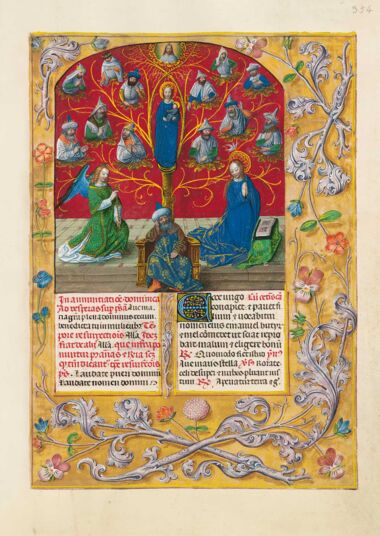 354
In annuntiatōe dominica
Ad vesperas sup psā Aue ma
ria gra plena dominus tecum
benedicta tu in mulieribus Te
pore resurrectiōis Alla Ide
fiat de alijs Alla que infra po
nuntur
resurrectiōis
ps Laudate pueri dominū
Laudate nomen domini
Ecce virgo
concipiet et pariet fi
lium et vocabitur
nomen eius emanuel butyr
et mel comedet ut sciat repro
bare malum et eligere bonū
R Quomodo fiet istud ym
Aue maris stella V Rorate
celi desuper et nubes pluant ius
tum R Aperiatur terra et g